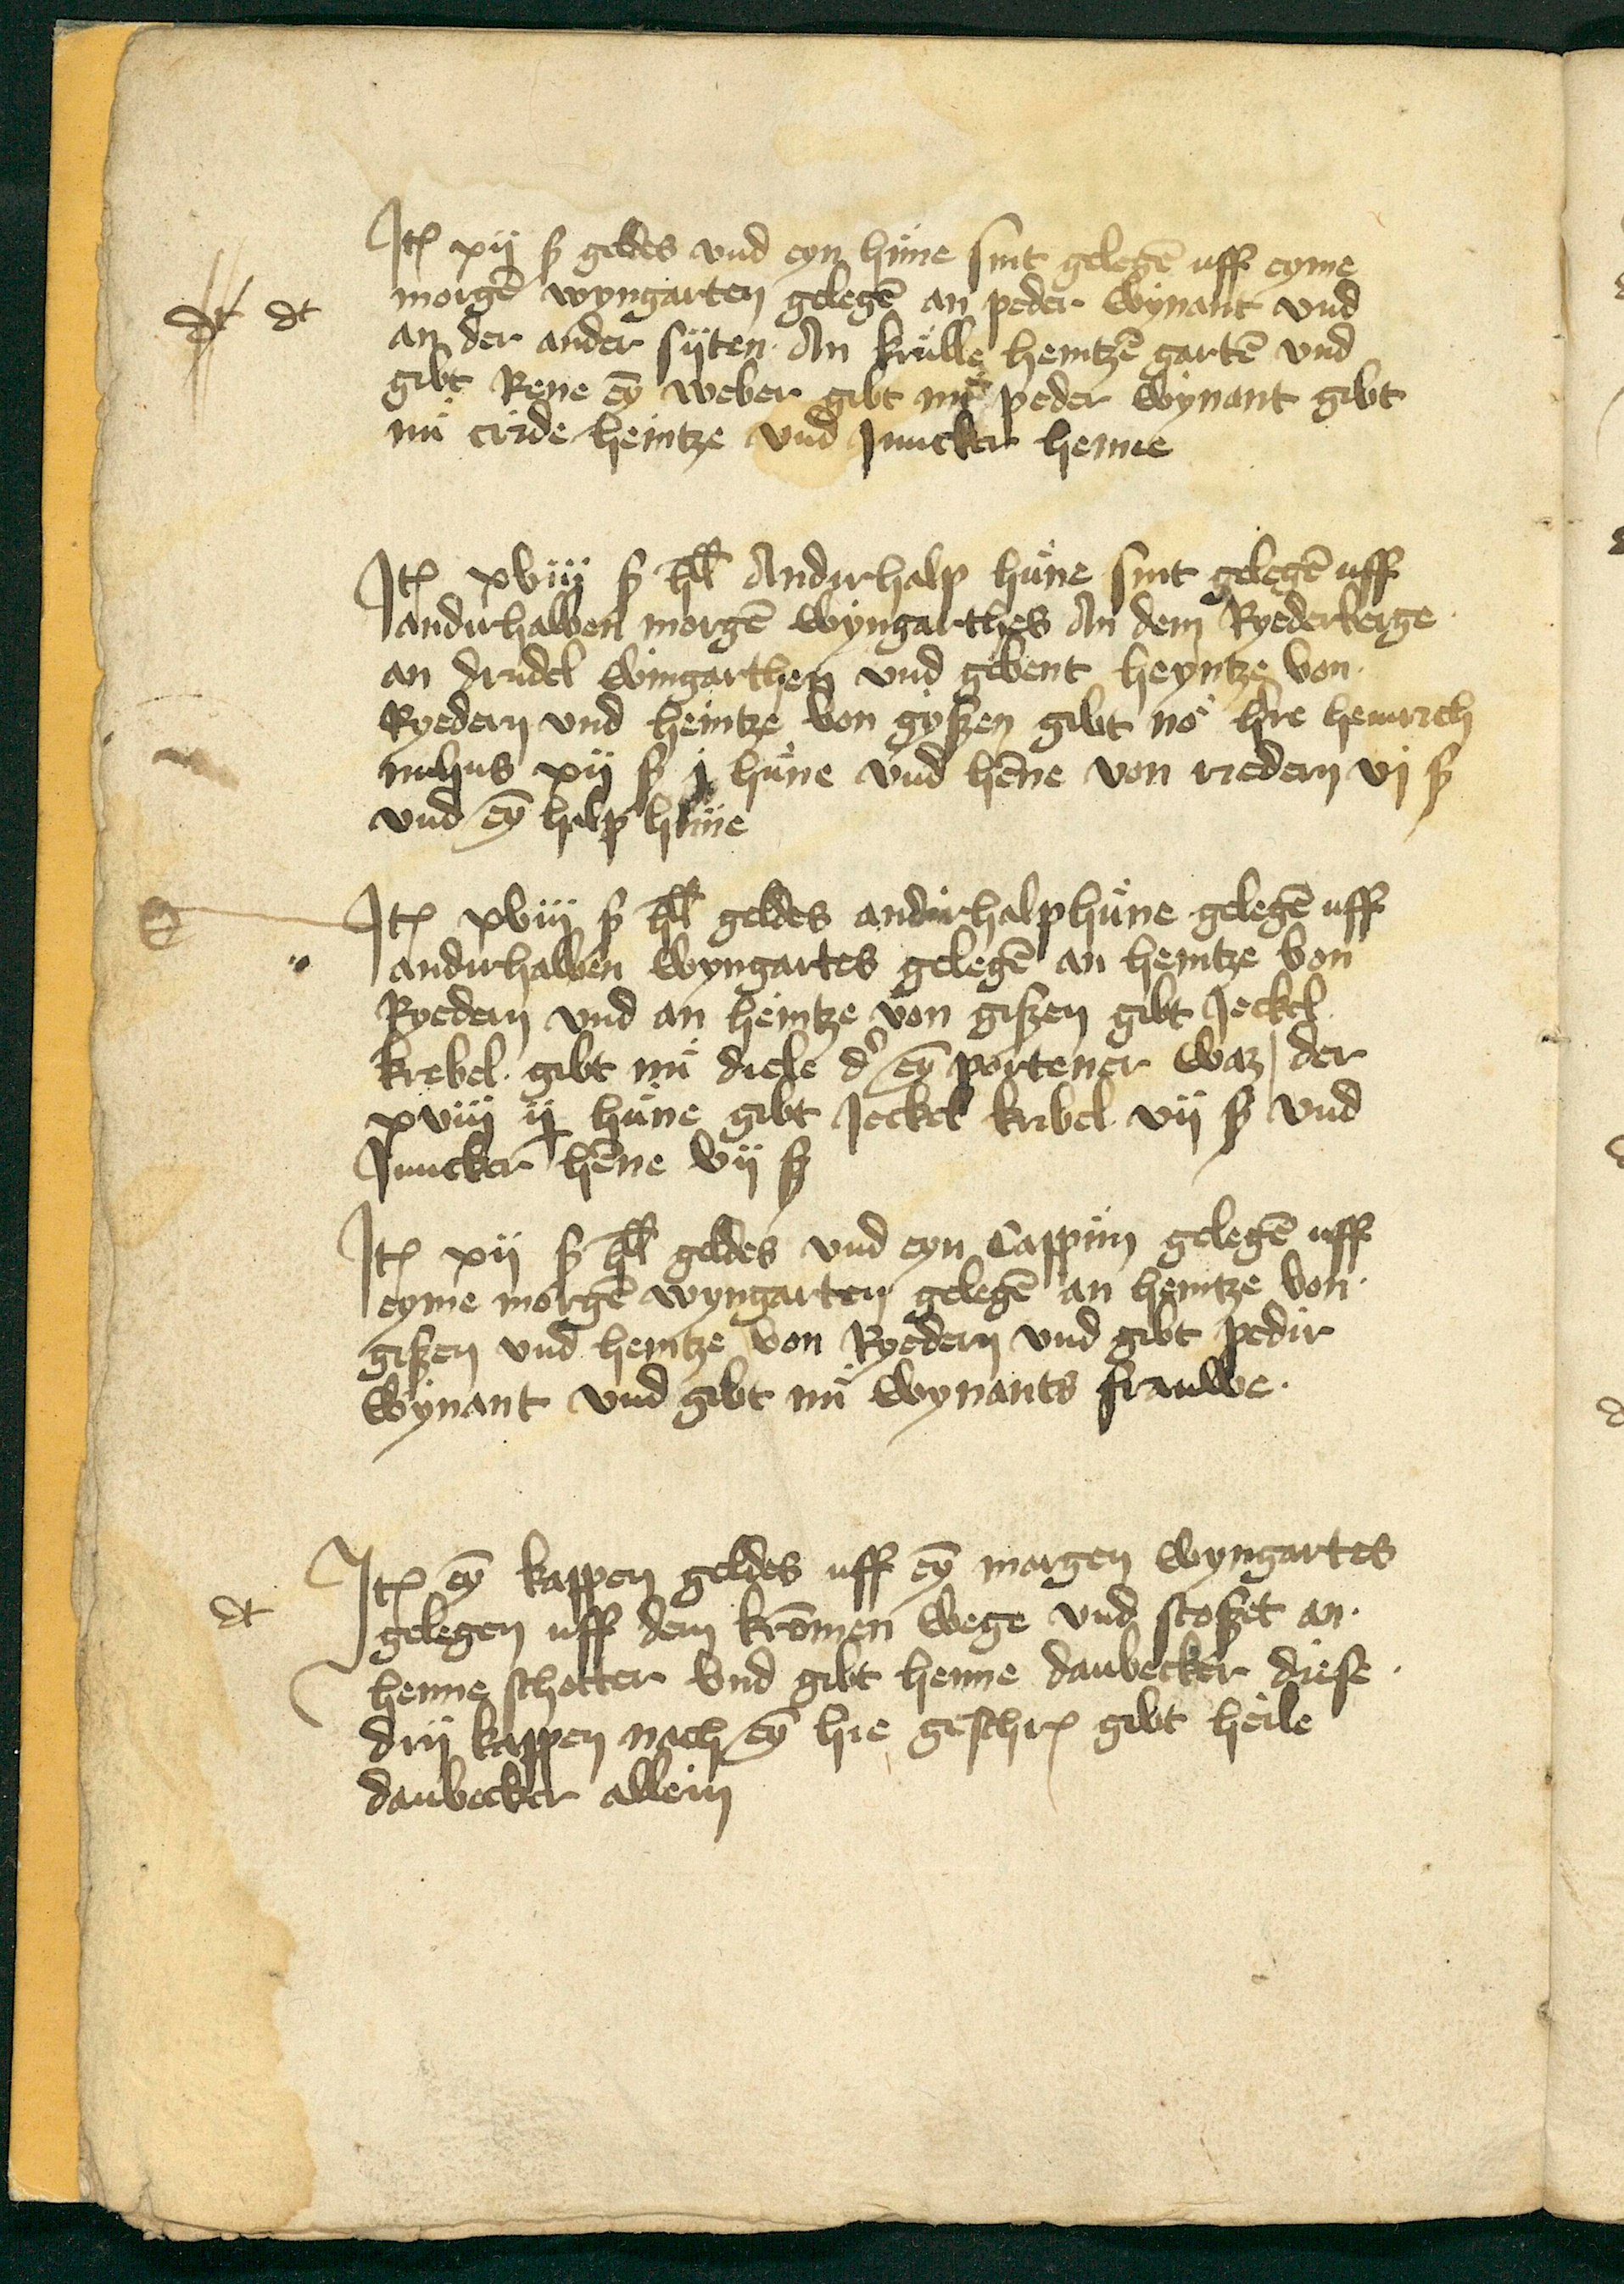 Itē xij ß geldes vnd eyn hůne sint gelegē uff eyme
dt dt morgē wyngarten gelegē an peder wynant vnd
an der ander sijten An krulle heintzē gartē vnd
gibt Rene eȳ weber gibt nů peder wynant gibt
nů cride heintze vnd Juncker henne
Itē xviij ß hll Andirhalp hůne sint gelegē uff
andirhalben morgē wyngarthes An dem Ryederberge
an drudel wingarthen vnd gebent heyntze von
Ryedern vnd heintze von gyßen gibt no hre heinrich
xij ß j hůne vnd hēne von riedern vj ß
vnd eȳ halp hůne
Itē xviij ß hll geldes andirhalp hůne gelegē uff
andirhalben wyngartes gelegē an heintze von
Ryedern vnd an heintze von gißen gibt Jeckel
krebel gibt nů diele d' eȳ portener waz der
xviij ij hůne gibt Jeckel kribel vij ß vnd
Juncker hēne vij ß
Itē xij ß hll geldes vnd eyn Cappun gelegē uff
eyme morgē wyngarten gelegē an heintze von
gißen vnd heintze von Ryedern vnd gibt pedir
wynant vnd gibt nů wynants frauwe
Itē eȳ kappen geldes uff eȳ morgen wyngartes
dt gelegen uff dem krōmen wege vnd stoßet an
henne schotter vnd gibt henne daubecker diese
drij kappen nach eȳ hie geschr gibt heile
daubecker allein